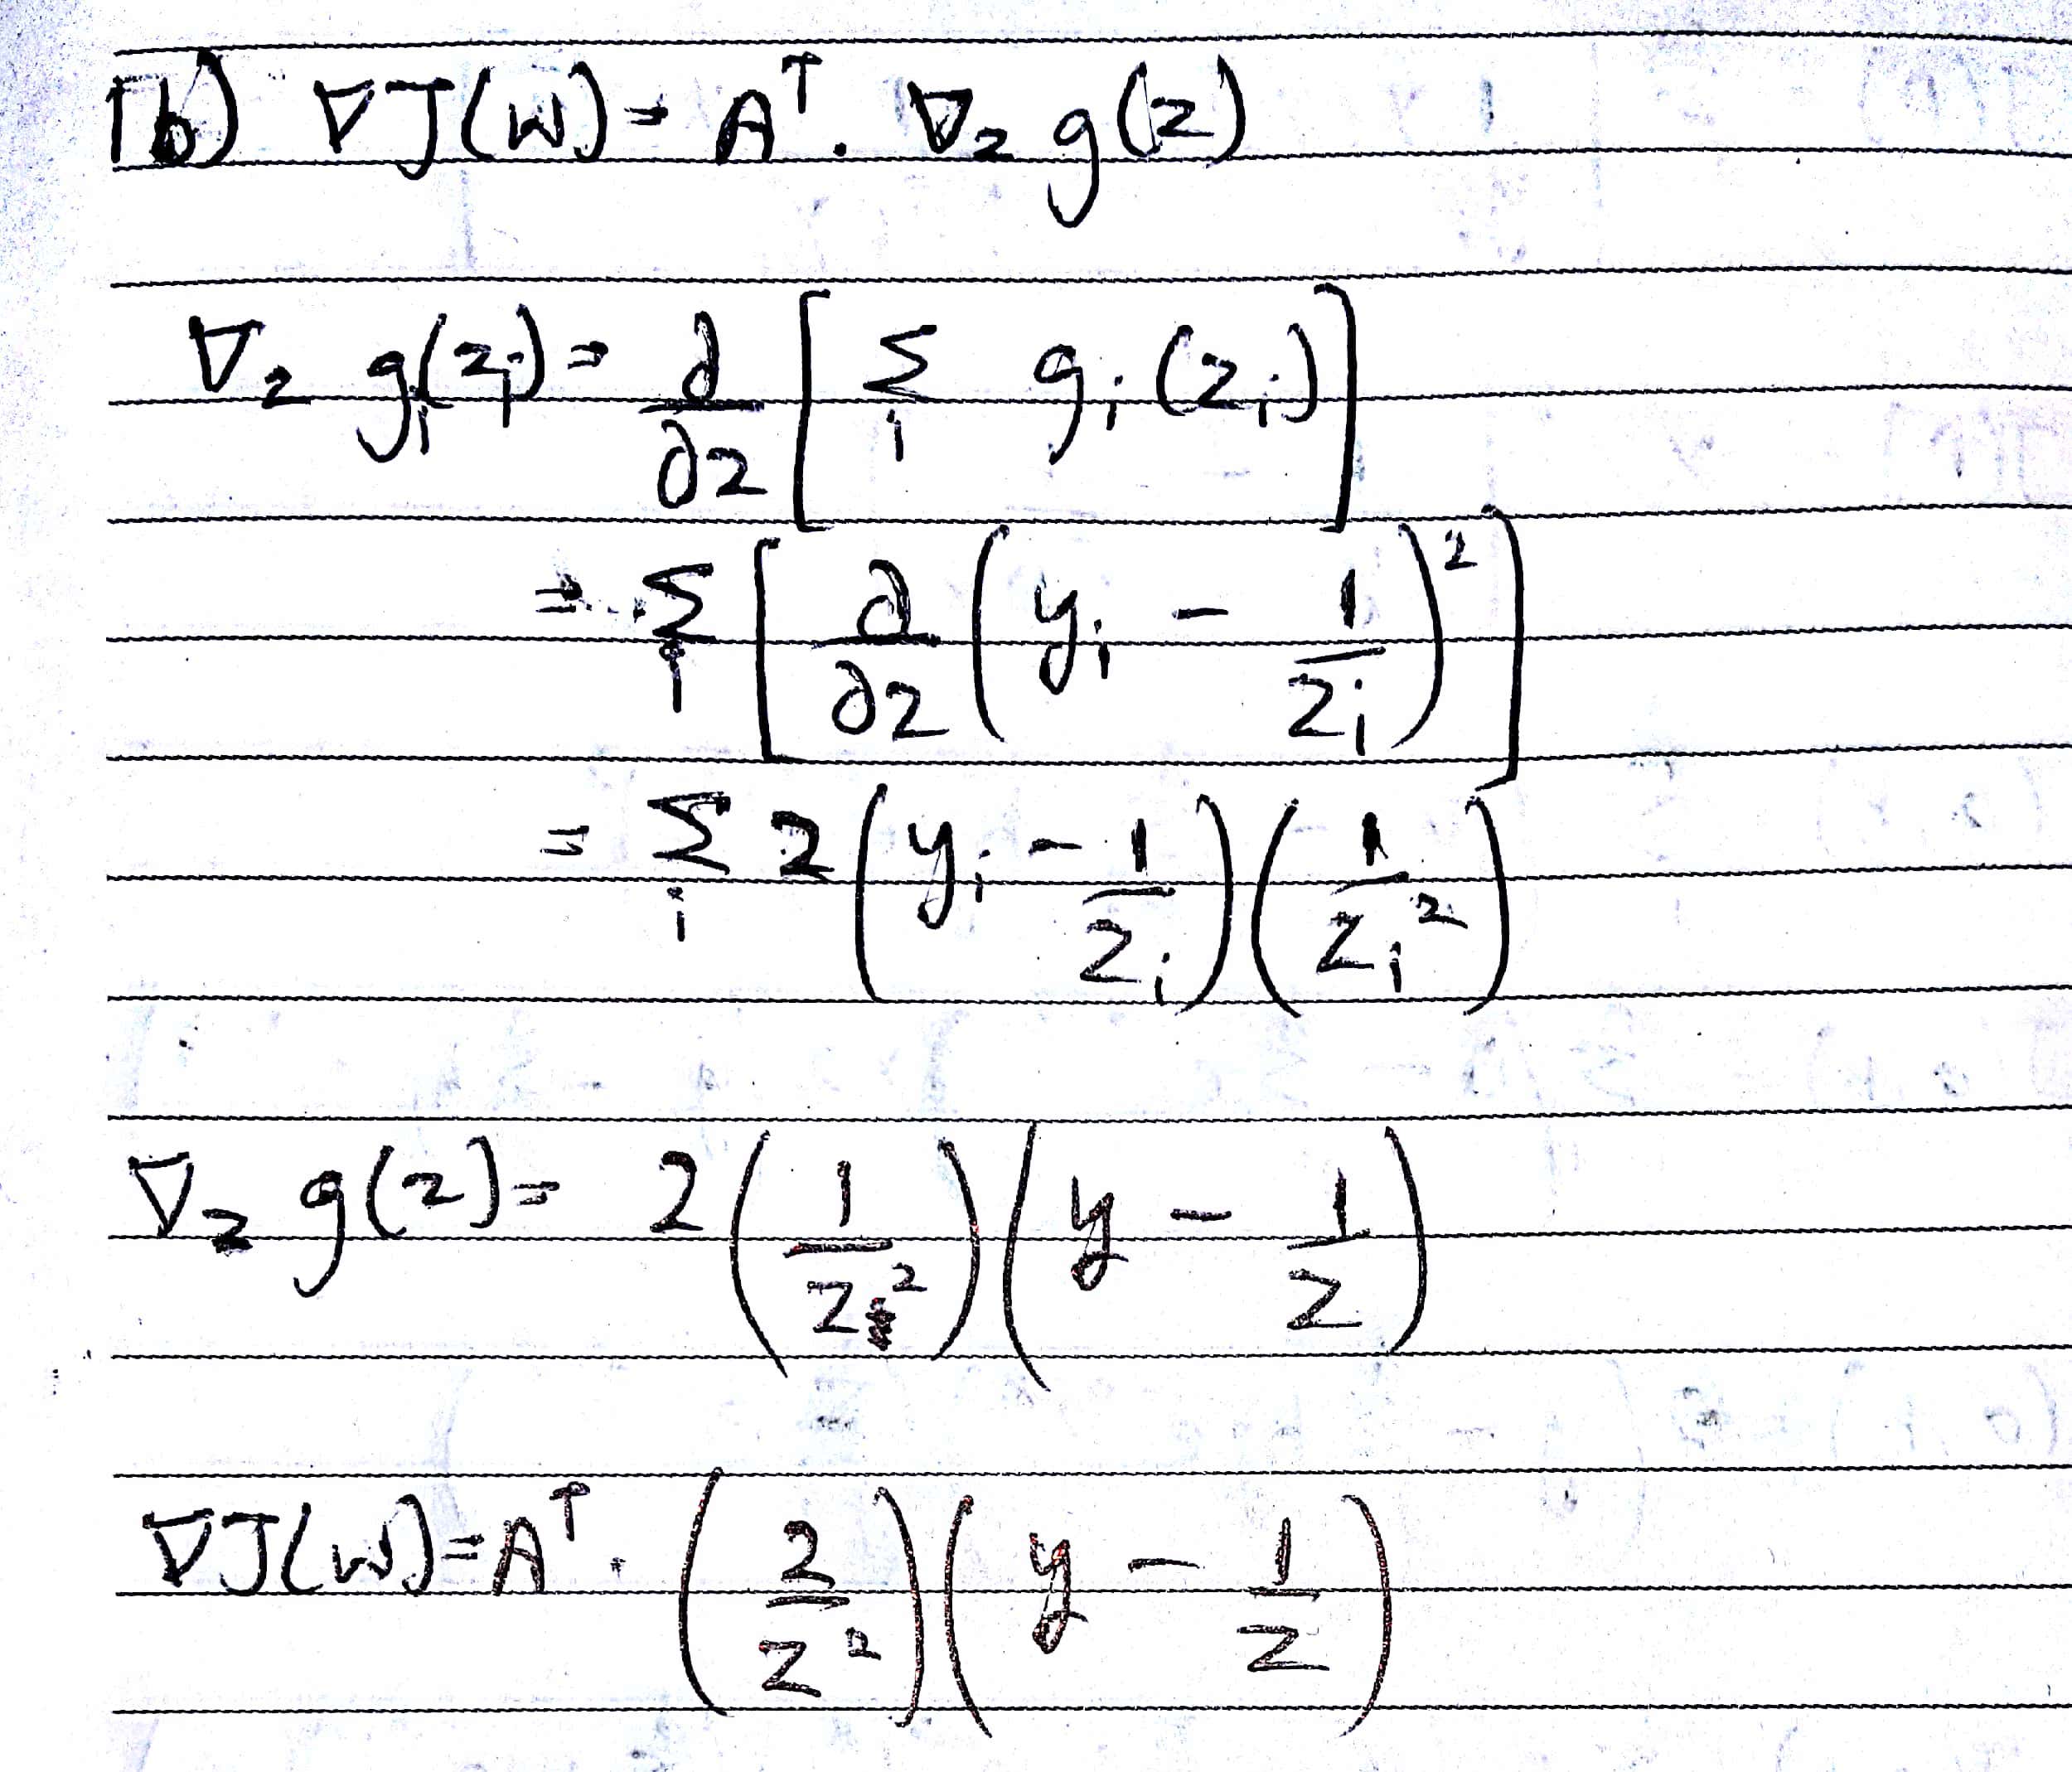 1b) ∇J(w) = Aᵀ · ∇z g(z)
∇z gᵢ(zᵢ) = ∂/∂z [ Σᵢ gᵢ(zᵢ) ]
= Σᵢ [ ∂/∂z ( yᵢ - 1/zᵢ )² ]
= Σᵢ 2 ( yᵢ - 1/zᵢ ) ( 1/zᵢ² )
∇z g(z) = 2 ( 1/z² ) ( y - 1/z )
∇J(w) = Aᵀ · ( 2/z² ) ( y - 1/z )